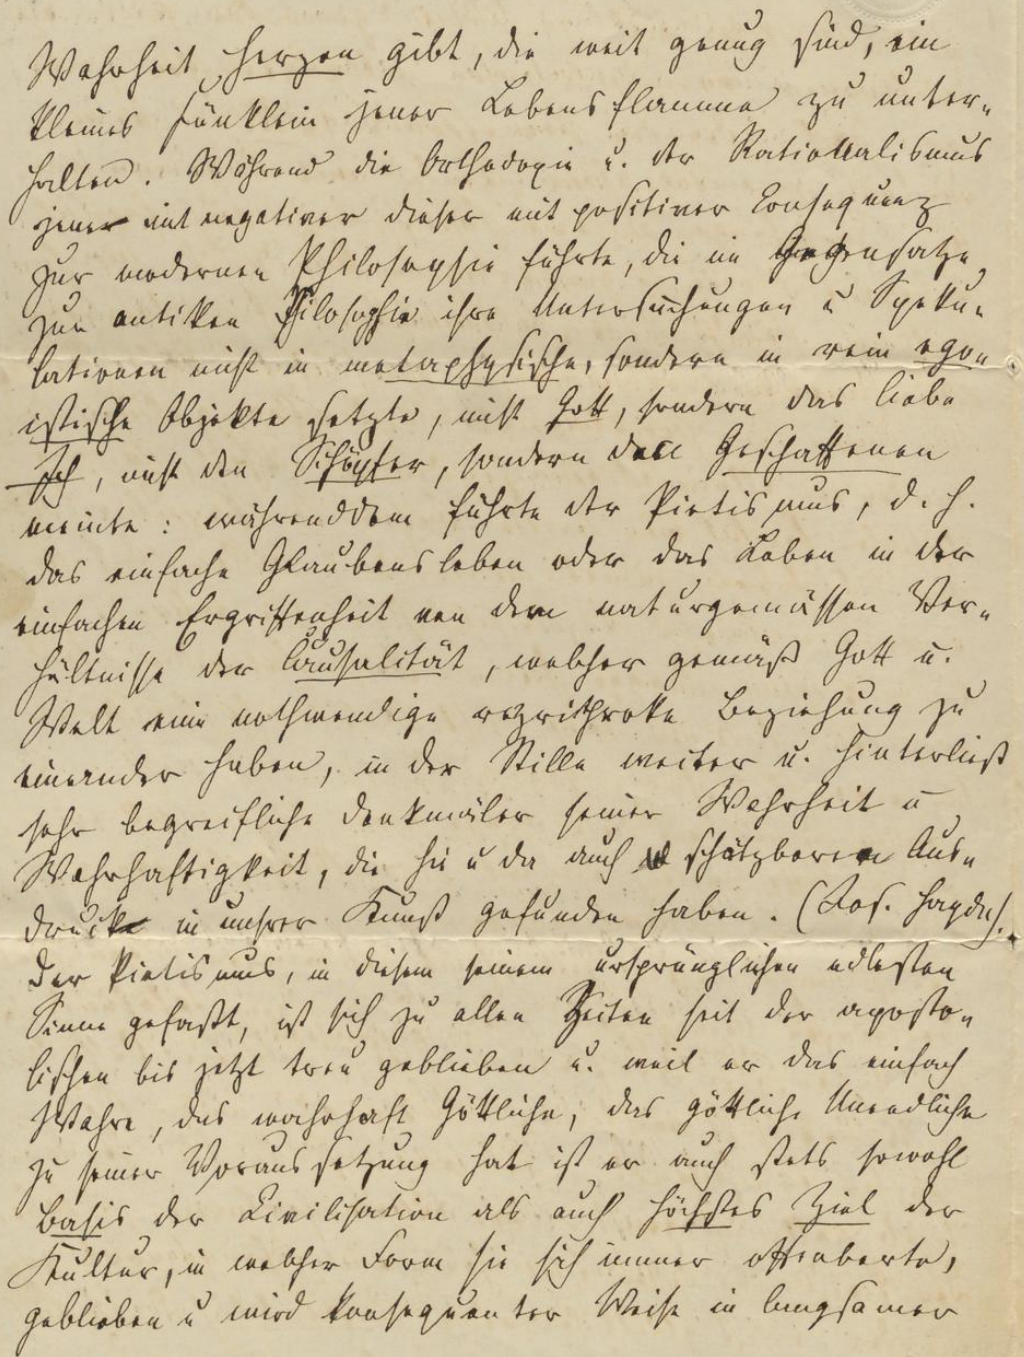 Wahrheit, Herzen gibt, die weit genug sind, ein
kleines Fünklein jener Lebensflamme zu unter-
halten. Während die Orthodoxie u. der Rationalismus
jener mit negativer dieser mit positiver Consequenz
zur modernen Philosophie führte, die im Gegensatze
zur antiken Philosophie ihre Untersuchungen u Speku-
lationen nicht in metaphysische, sondern in rein ego-
istische Objekte setzte, nicht Gott, sondern das liebe
Ich, nicht den Schöpfer, sondern den Geschaffenen
meinte: währenddem führte der Pietismus, d. h.
das einfache Glaubensleben oder das Leben in der
einfachen Ergriffenheit von dem naturgemässen Ver-
hältnisse der Causalität, welcher gemäß Gott u.
Welt eine nothwendige Beziehung zu
einander haben, in der Stille weiter u. hinterließ
sehr begreifliche Denkmäler seiner Wahrheit u
Wahrhaftigkeit, die hie u da auch schätzbaren Aus-
druck in unsrer Kunst gefunden haben. (Jos. Haydn).
Der Pietismus, in diesem seinem ursprünglichen edlesten
Sinne gefaßt, ist sich zu allen Zeiten seit der aposto-
lischen bis jetzt treu geblieben u. weil er das einfach
Wahre, das wahrhaft Göttliche, das göttlich Unendliche
zu seiner Voraussetzung hat ist er auch stets sowohl
Basis der Civilisation als auch höchstes Ziel der
Kultur, in welcher Form sie sich immer offenbarte,
geblieben u wird konsequenter Weise in langsamer